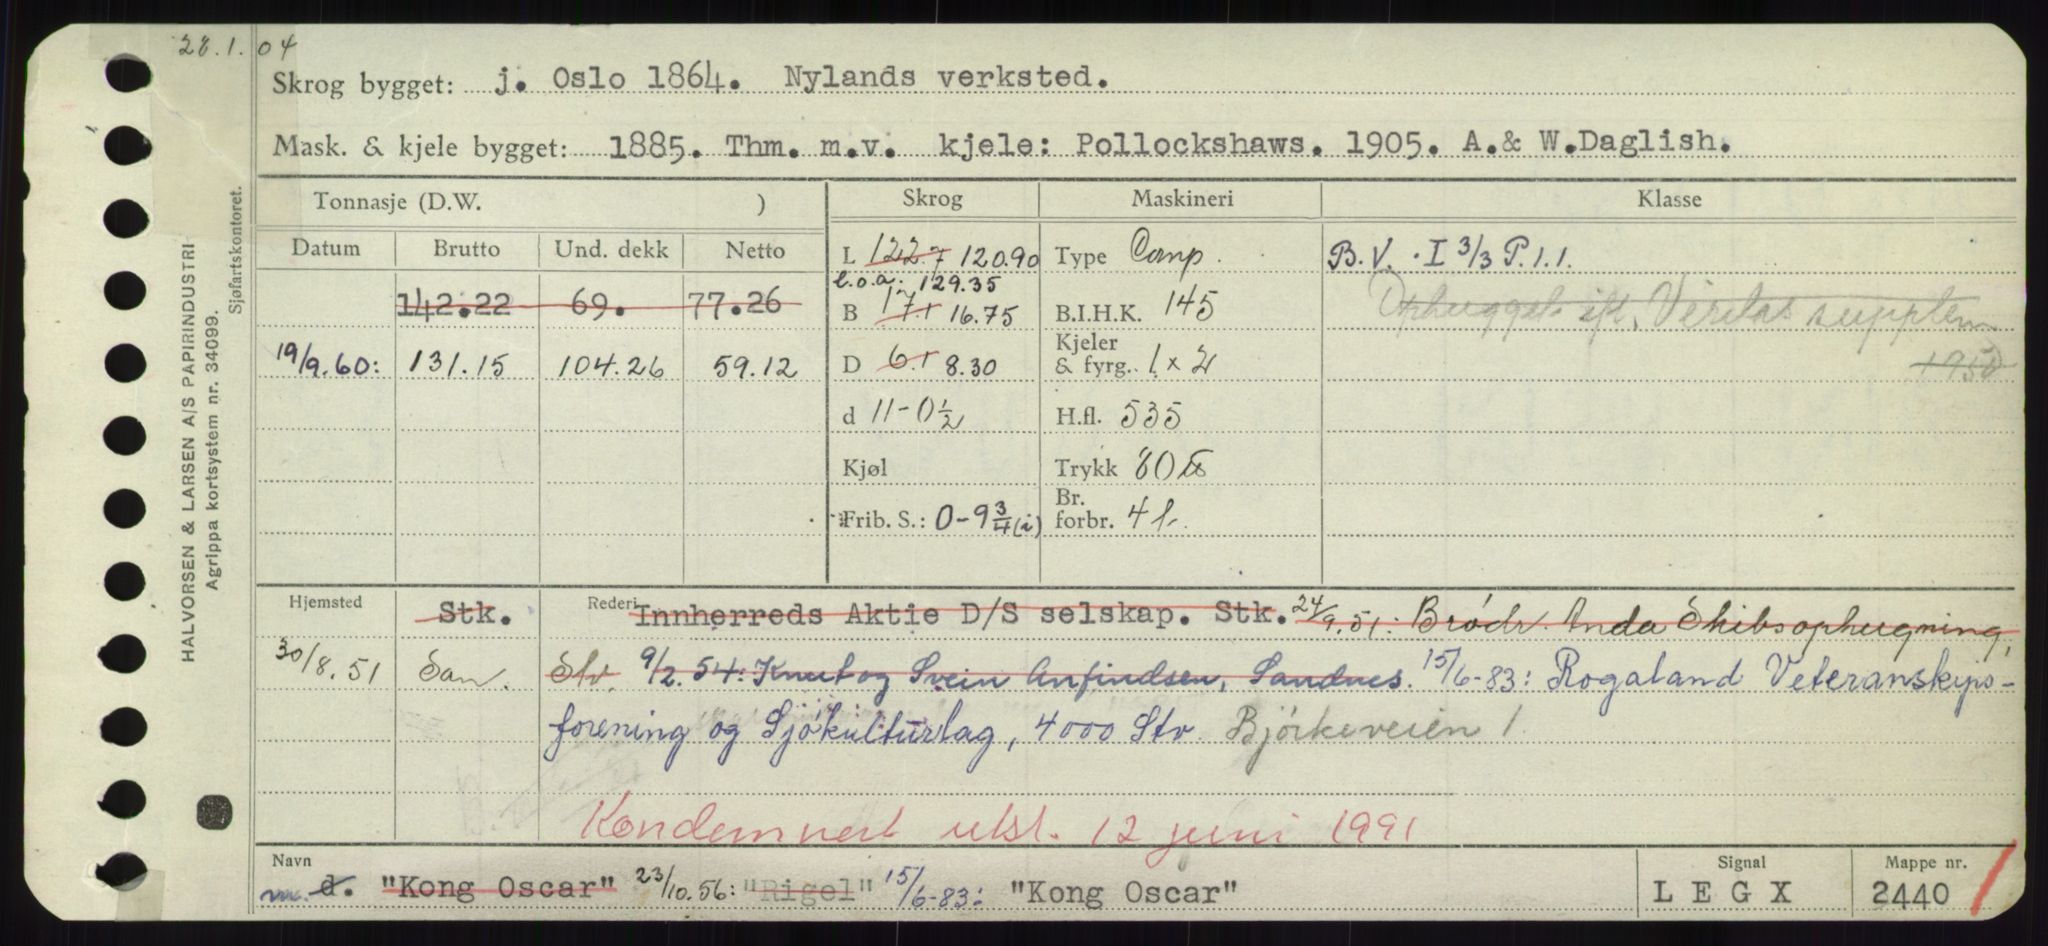 28.1.04
Skrog bygget: j. Oslo 1864. Nylands verksted.
Mask. & kjele bygget: 1885. Thm. m.v. kjele: Pollockshaws. 1905. A.& W.Daglish.
Tonnasje (D.W. ) Skrog Maskineri Klasse
Datum Brutto Und. dekk Netto
L 122.7 120.90 Type Comp. B.V. . I 3/3 P.1.1.
l.o.a: 129.35
142.22 69. 77.26 B 17.1 16.75 B.I.H.K. 145 Ophugget ifl. Veritas supplem
19/9.60: 131.15 104.26 59.12 D 6.1 8.30 Kjeler & fyrg. 1 x 2 1950
d 11-0½ H.fl. 535
Kjøl Trykk 80 lb
Frib. S.: 0-9¾(i) Br. forbr. 4 t.
Hjemsted Stk. Rederi Innherreds Aktie D/S selskap. Stk. 24/9.51: Brødr. Anda Skibsophugning,
30/8.51 San. Stv. 9/2.54: Knut og Svein Anfindsen, Sandnes. 15/6-83: Rogaland Veteranskips-
forening og Sjökulturlag, 4000 Stv. Björkeveien 1
Kondemnert utsl. 12 juni 1991
Navn Signal Mappe nr.
d. "Kong Oscar" 23/10.56: "Rigel" 15/6-83: "Kong Oscar" L E G X 2440
HALVORSEN & LARSEN A/S PAPIRINDUSTRI
Agrippa kortsystem nr. 34099.
Sjøfartskontoret.